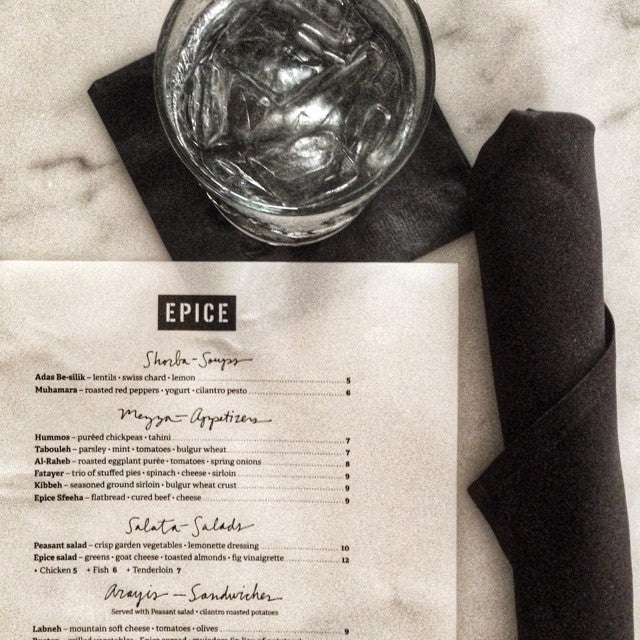 EPICE
Shorba - Soups
Adas Be-silik – lentils • swiss chard • lemon 5
Muhamara – roasted red peppers • yogurt • cilantro pesto 6
Mezza - Appetizers
Hummos – puréed chickpeas • tahini 7
Tabouleh – parsley • mint • tomatoes • bulgur wheat 7
Al-Raheb – roasted eggplant purée • tomatoes • spring onions 8
Fatayer – trio of stuffed pies • spinach • cheese • sirloin 9
Kibbeh – seasoned ground sirloin • bulgur wheat crust 9
Epice Sfeeha – flatbread • cured beef • cheese 9
Salata - Salads
Peasant salad – crisp garden vegetables • lemonette dressing 10
Epice salad – greens • goat cheese • toasted almonds • fig vinaigrette 12
+ Chicken 5 + Fish 6 + Tenderloin 7
Arayis - Sandwiches
Served with Peasant salad • cilantro roasted potatoes
Labneh – mountain soft cheese • tomatoes • olives 9